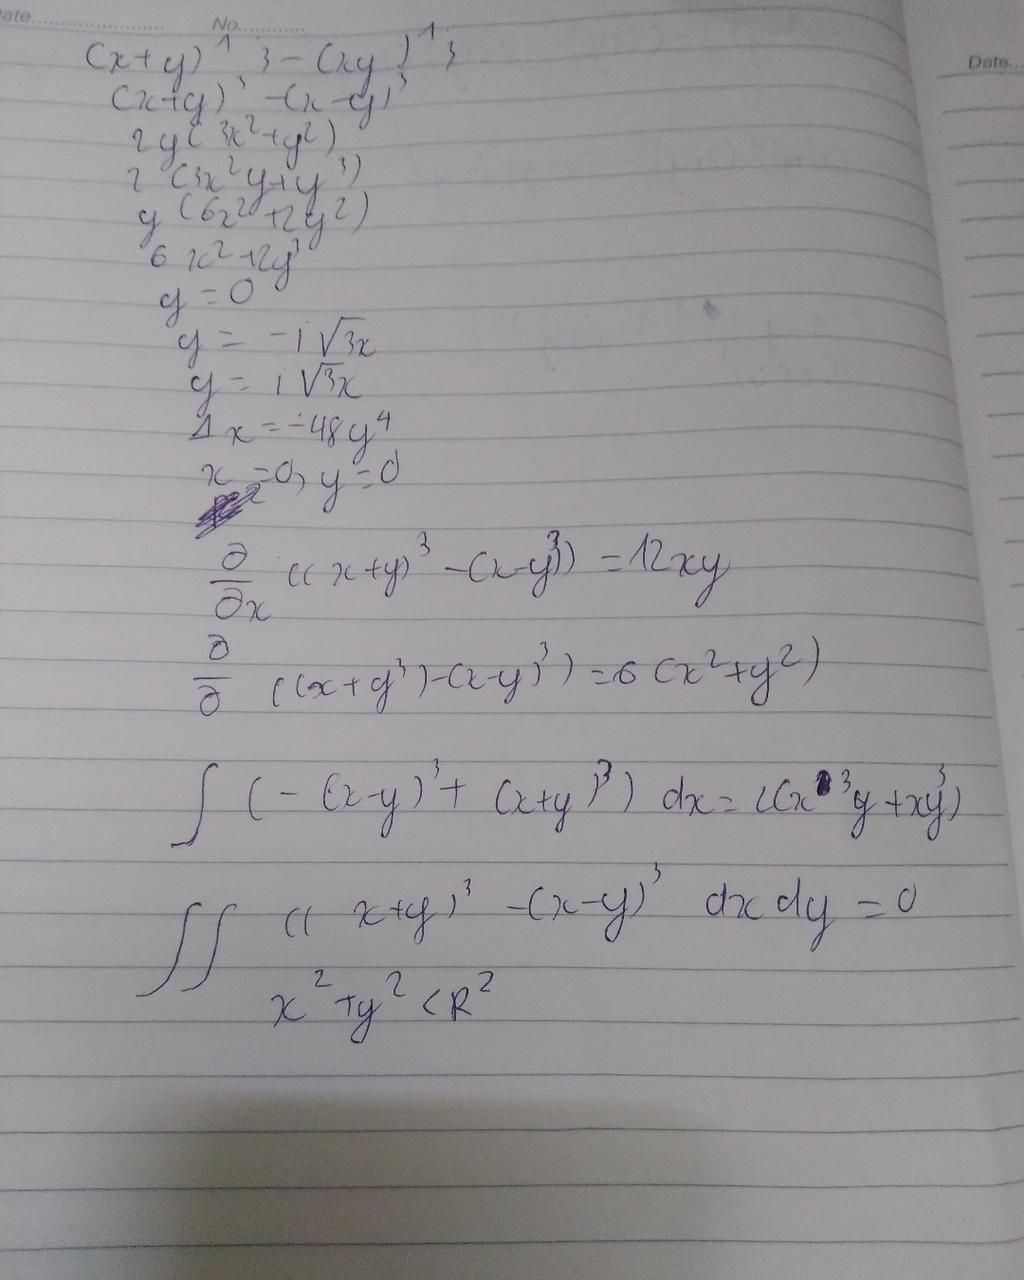 Date.................... No............
Date...
(x+y)^1 3-(xy)^1 3
(x+y)^3 -(x-y)^3
2y(3x^2+y^2)
2 (3x^2y+y^3)
y (6x^2+2y^2)
6 x^2+2y^3
y = 0
y = -i√3x
y = i√3x
Δx = -48y^4
x = 0, y = 0
∂/∂x ((x+y)^3 -(x-y^3)) = 12xy
∂/∂ ((x+y^3)-(x-y)^3) = 6 (x^2+y^2)
∫ (-(x-y)^3 + (x+y)^3) dx = 2(x^3y+xy^3)
∬ ((x+y)^3 -(x-y)^3 dx dy = 0
x^2+y^2<R^2